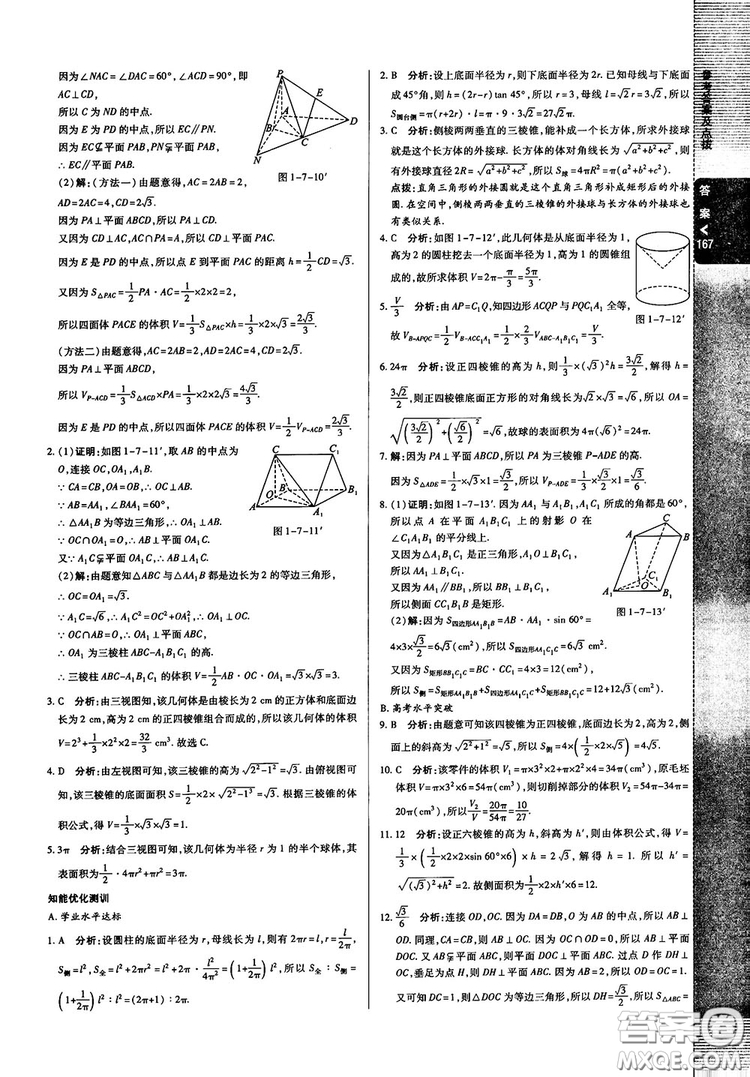 因为∠NAC=∠DAC=60°,∠ACD=90°,即
AC⊥CD,
所以 C 为 ND 的中点.
因为 E 是 PD 的中点,所以 EC∥PN.
因为 EC⊊平面 PAB,PN⊊平面 PAB,
∴ EC∥平面 PAB.
(2)解:(方法一)由题意得,AC=2AB=2,
AD=2AC=4,CD=2√3.
因为 PA⊥平面 ABCD,所以 PA⊥CD.
又因为 CD⊥AC,AC∩PA=A,所以 CD⊥平面 PAC.
因为 E 是 PD 的中点,所以点 E 到平面 PAC 的距离 h=1/2 CD=√3.
又因为 S△PAC=1/2 PA·AC=1/2×2×2=2,
所以四面体 PACE 的体积 V=1/3 S△PAC×h=1/3×2×√3=2√3/3.
(方法二)由题意得,AC=2AB=2,AD=2AC=4,CD=2√3.
因为 PA⊥平面 ABCD,
所以 V_P-ACD=1/3 S△ACD×PA=1/3×1/2×2×2√3×2=4√3/3.
因为 E 是 PD 的中点,所以四面体 PACE 的体积 V=1/2 V_P-ACD=2√3/3.
P
E
A
D
B
C
N
图 1-7-10′
2. (1)证明:如图 1-7-11′,取 AB 的中点为
O,连接 OC,OA₁,A₁B.
∵ CA=CB,∴ OC⊥AB.
∵ AB=AA₁,∠BAA₁=60°,
∴ △AA₁B 为等边三角形,∴ OA₁⊥AB.
∵ OC∩OA₁=O,∴ AB⊥平面 OA₁C.
又∵ A₁C⊊平面 OA₁C,∴ AB⊥A₁C.
(2)解:由题意知△ABC 与△AA₁B 都是边长为 2 的等边三角形,
∴ OC=OA₁=√3.
∵ A₁C=√6,∴ A₁C²=OC²+OA₁²,∴ OA₁⊥OC.
∵ OC∩AB=O,∴ OA₁⊥平面 ABC,
∴ OA₁ 为三棱柱 ABC-A₁B₁C₁ 的高.
∴ 三棱柱 ABC-A₁B₁C₁ 的体积 V=1/2×2×√3×√3=3.
图 1-7-11′
3. C 分析:由三视图可知,该几何体是由棱长为 2 cm 的正方体和底面边
长为 2 cm,高为 2 cm 的正四棱锥组合而成的,所以该几何体的体积
V=2³+1/3×2×2×2=32/3(cm³).故选 C.
4. D 分析:由左视图可知,该三棱锥的高为√(2²-1²)=√3.由俯视图可
知,该三棱锥的底面面积 S=1/2×2×√(2²-1²)=√3.由三棱锥的体
积公式,得 V=1/3×√3×√3=1.
5. 3π 分析:结合三视图可知,该几何体为半径 r 为 1 的半个球体,其
表面积为 1/2·4πr²+πr²=3π.
知能优化测训
A. 学业水平达标
1. A 分析:设圆柱的底面半径为 r,母线长为 l,则有 2πr=l,r=l/2π.
S侧=l²,S全=2πr²+l²=2π·l²/4π²+l²=(1+1/2π)l²,所以 S全∶S侧=
(1+1/2π)l²∶l²=(1+2π)∶2π.
2. B 分析:设上底面半径为 r,则下底面半径为 2r.已知母线与底面
成 45°角,则 h=(2r-r)tan 45°=r.所以 r=3,母线 l=√2r=3√2.所以
S圆台侧=π(r+2r)·l=π·9·3√2=27√2π.
3. C 分析:侧棱两两垂直的三棱锥,能补成一个长方体,所求外接球
就是长方体的外接球.由于长方体的体对角线长为√(a²+b²+c²),则
有外接球直径 2R=√(a²+b²+c²),所以 S球=4πR²=π(a²+b²+c²).
点拨:直角三角形的外接圆可把直角三角形补成矩形后的外接
圆.在空间中,侧棱两两垂直的三棱锥的外接球与长方体的外接球也
有类似关系.
4. C 分析:如图 1-7-12′,此几何体是从底面半径为 1,
高为 2 的圆柱挖去一个底面半径为 1,高为 1 的圆锥构
成的,则 V=2π-π/3=5π/3.
图 1-7-12′
5. V/3 分析:由 AP=C₁Q,知四边形 ACQP 与 PQC₁A₁ 全等,
故 V_B-APQC=1/2 V_B-ACC₁A₁=1/2×2/3 V_ABC-A₁B₁C₁=V/3.
6. 24π 分析:设正四棱锥的高为 h,则 1/3×(√3)²h=3√2/2,解得 h=
3√2/2,则正四棱锥底面正方形的对角线长为√2×√3=√6,所以 OA=
√((3√2/2)²+(√6/2)²)=√6,故球的表面积为 4π(√6)²=24π.
7. 解:因为 S△ADE=1/2×√3×1=√3/2,所以三棱锥 P-ADE 的高为√3,
又因为 S△ADE=1/2×√3×1=√3/2,所以 V=1/3×√3/2×√3=1/2.
8. (1)证明:如图 1-7-13′.因为 AA₁ 与 A₁B₁,A₁C₁ 所成的角都是 60°,
所以点 A 在平面 A₁B₁C₁ 上的射影 O 在
∠C₁A₁B₁ 的平分线上.
又因为△A₁B₁C₁ 是正三角形,所以 A₁O⊥B₁C₁,
所以 AA₁⊥B₁C₁.
又因为 AA₁∥BB₁,所以 BB₁⊥B₁C₁.
所以侧面 CC₁B₁B 是矩形.
图 1-7-13′
(2)解:因为 S四边形AA₁B₁B=AB·AA₁·sin 60°=
4×3×√3/2=6√3(cm²),所以 S四边形AA₁C₁C=6√3 cm².
又因为 S矩形BB₁C₁C=4×3=12(cm²),
所以 S侧=S四边形AA₁B₁B+S四边形AA₁C₁C+S矩形BB₁C₁C=12+12√3(cm²).
B. 高考水平突破
9. B 分析:由题意可知该四棱锥为正四棱锥,底面边长为 2,高为 2,侧
面上的斜高为√(2²+1²)=√5,所以 S侧=4×(1/2×2×√5)=4√5,V=
1/3×2²×2=8/3.
10. C 分析:该零件的体积 V₁=π×3²×2+π×2²×4=34π(cm³),原毛坯
体积 V=π×3²×6=54π(cm³),则切削掉部分的体积 V₂=54π-34π=
20π(cm³),所以 V₂/V=20π/54π=10/27.
11. 12 分析:设正六棱锥的高为 h,斜高为 h′,则由体积公式,得
1/3×(1/2×2×2×sin 60°×6)×h=2√3,解得 h=1,所以 h′=
√((√3)²+h²)=2.故侧面积为 1/2×2×h′×6=12.
12. √3/6 分析:连接 OD,OC.因为 DA=DB,O 为 AB 的中点,所以 AB⊥
OD.同理,CA=CB,则 AB⊥OC.因为 OC∩OD=O,所以 AB⊥平面
DOC.又 AB⊊平面 ABC,故平面 DOC⊥平面 ABC.过点 D 作 DH⊥OC,
垂足为点 H,则 DH⊥平面 ABC,故 DH 是三棱锥 D-ABC 的高.
又可知 DC=1,故△DOC 为等边三角形,所以 DH=√3/2.又知 S△ABC=
参考答案及点拨
答案
167
答案圈
MXQE.COM